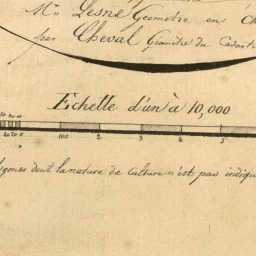 Mr Lesne Geometre en
Cheval Géomètre du Cadastre
Echelle d'un à 10,000
100 2 3 4 5
dont la nature de Culture n'est pas indiqu